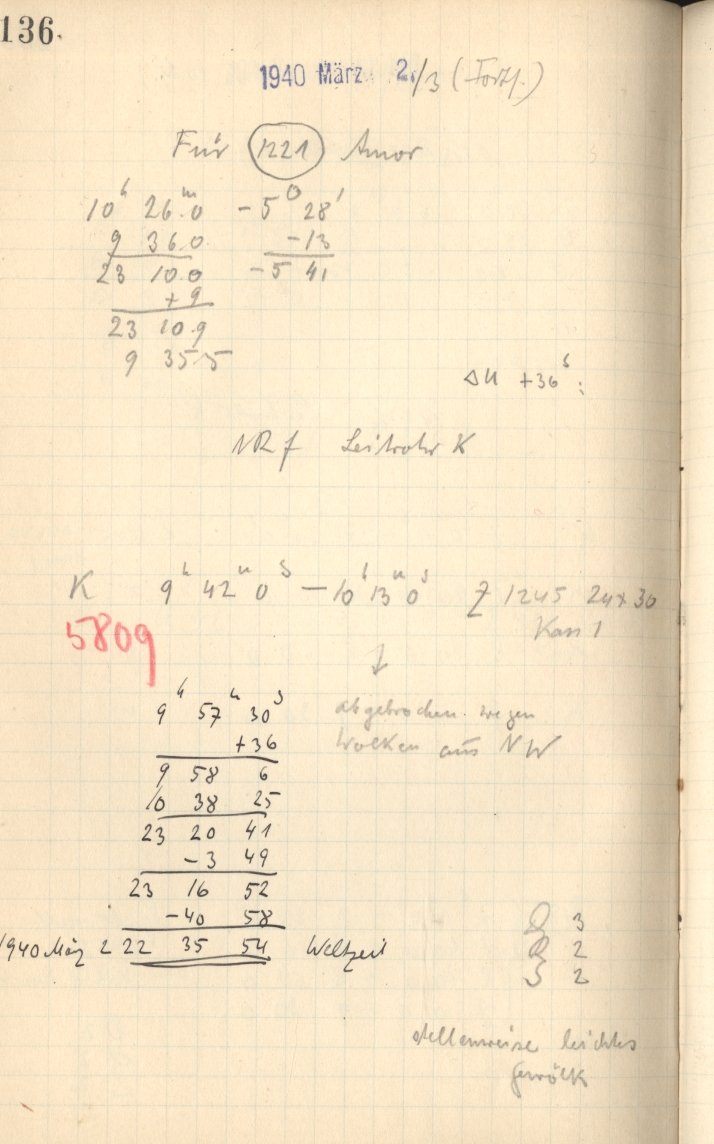 136.
1940 März 2./3 (Forts.)
Für 1221 Amor
10h 26m.0 -5° 28'
9 36.0 -13
23 10.0 -5 41
+9
23 10.9
9 35.5
Δu +36s:
NRf Leitrohr K
K 9h 42m 0s — 10h 13m 0s Z 1245 24x30
5809 Kass 1
↓
9h 57m 30s abgebrochen wegen
+36 Wolken aus NW
9 58 6
10 38 25
23 20 41
-3 49
23 16 52
-40 58
1940 März 2 22 35 54 Weltzeit
3
2
S 2
stellenweise leichtes
Gewölk